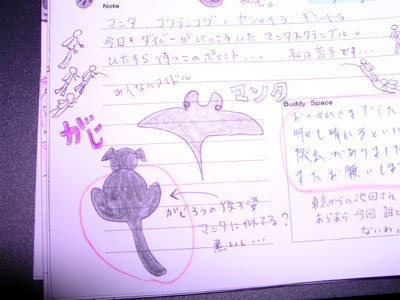 Note
マンタ、コクテンフグ、ヤシャハゼ、ギンガハゼ
今日もダイバーがけっこういた マンタスクランブル。
ひたすら待つこのポイント… 私は苦手です…
みんなのアイドル
マンタ
がじ
がじろうの後ろ姿
マンタに似てる?
黒いし…
Buddy Space
おつかれさまでした
明日も晴れるといい
機会がありました
またお願いしま
東京からの池田さん
あらあら今回誰と
ないわ。